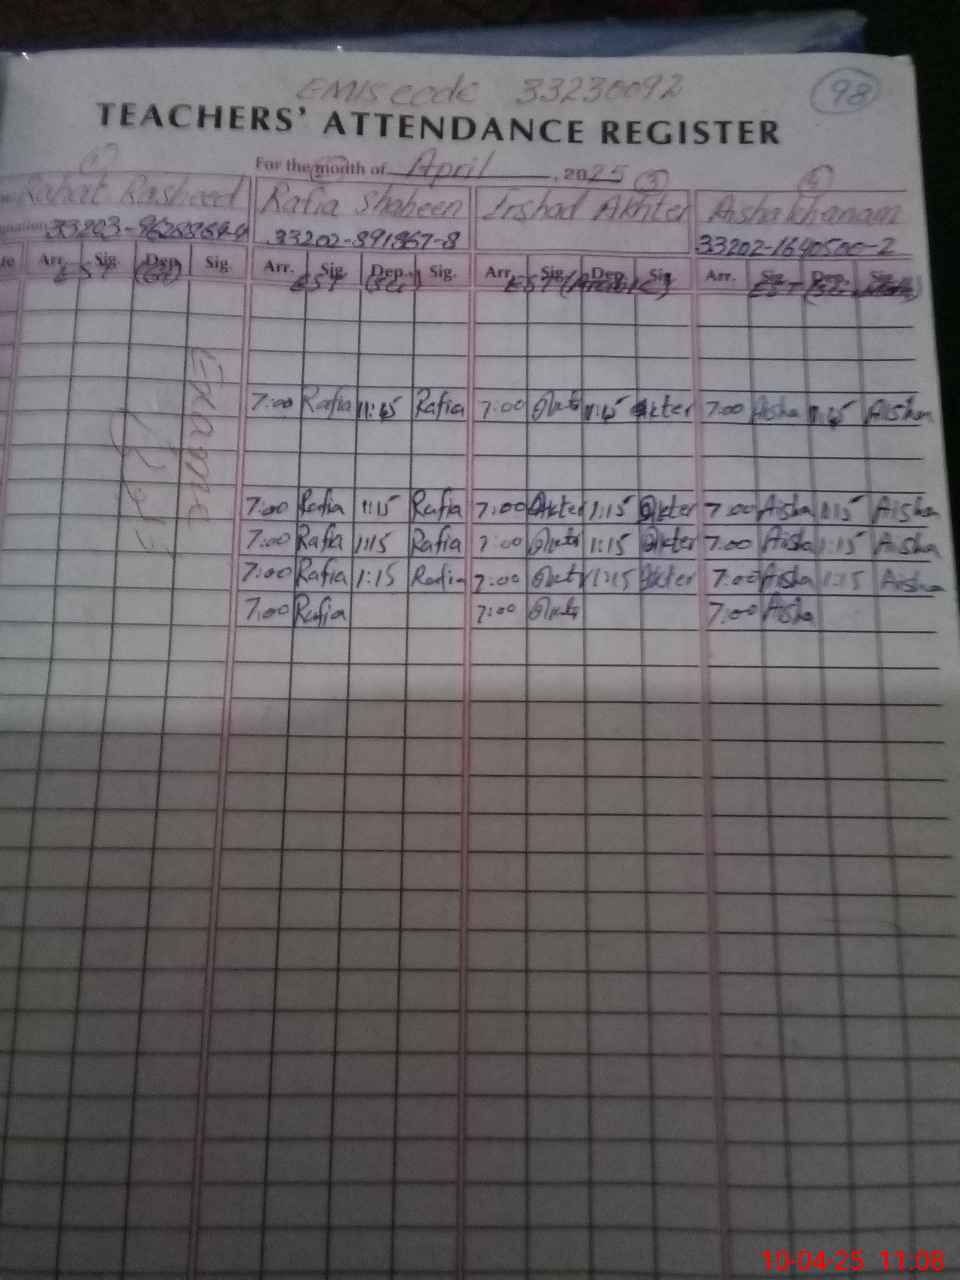 EMIS code 33230092
98
TEACHERS' ATTENDANCE REGISTER
For the month of April, 2025
Rahat Rasheed Rafia Shaheen Irshad Akhter Aisha Khanam
33202-891867-8 33202-1640500-2
Arr. Sig. Dep. Sig. Arr. Sig. Dep. Sig. Arr. Sig. Dep. Sig. Arr. Sig. Dep. Sig.
EST EST EST EST
7:00 Rafia 11:45 Rafia 7:00 11:45 Akter 7:00 Aisha 11:45 Aisha
7:00 Rafia 1:15 Rafia 7:00 Akter 1:15 Akter 7:00 Aisha 1:15 Aisha
7:00 Rafia 1:15 Rafia 7:00 1:15 Akter 7:00 Aisha 1:15 Aisha
7:00 Rafia 1:15 Rafia 7:00 1:15 Akter 7:00 Aisha 1:15 Aisha
7:00 Rafia 7:00 7:00 Aisha
10-04-25 11:08